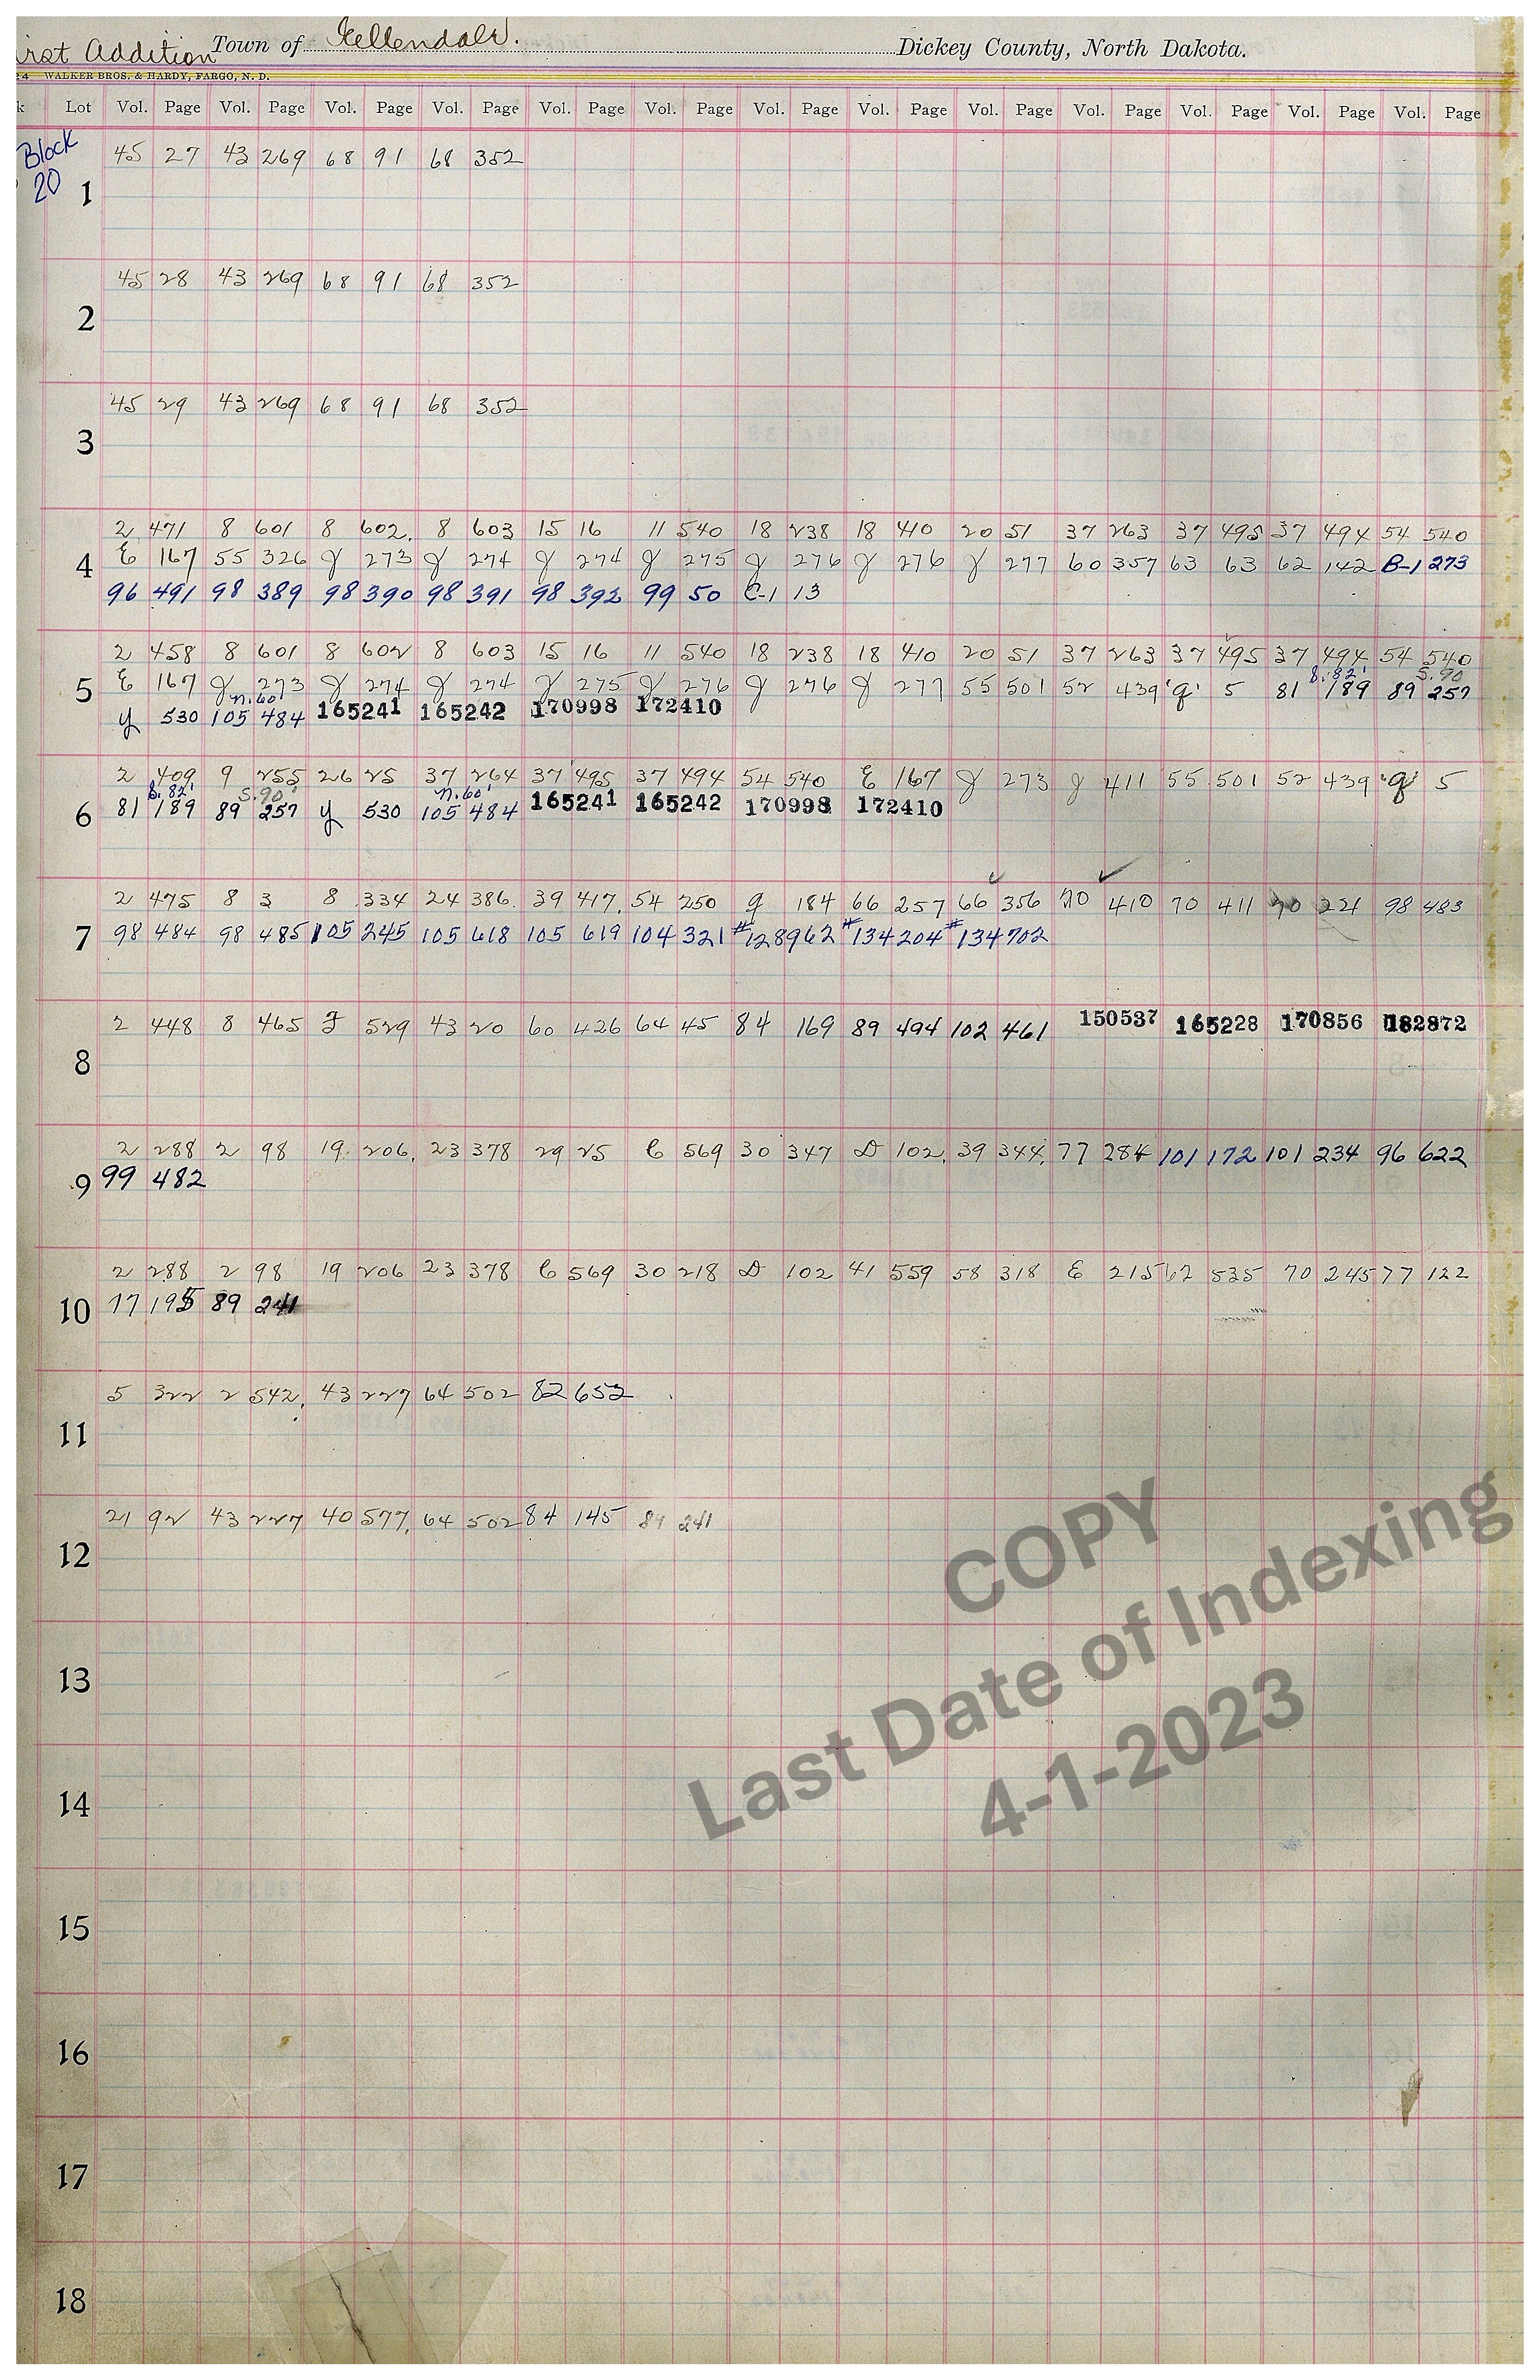 irst Addition Town of Ellendale. Dickey County, North Dakota.
24 WALKER BROS. & HARDY, FARGO, N. D.
k Lot Vol. Page Vol. Page Vol. Page Vol. Page Vol. Page Vol. Page Vol. Page Vol. Page Vol. Page Vol. Page Vol. Page Vol. Page Vol. Page
Block
20
1 45 27 43 269 68 91 68 352
2 45 28 43 269 68 91 68 352
3 45 29 43 269 68 91 68 352
2 471 8 601 8 602 8 603 15 16 11 540 18 238 18 410 20 51 37 263 37 495 37 494 54 540
4 E 167 55 326 g 273 g 274 g 274 g 275 g 276 g 276 g 277 60 357 63 63 62 142 B-1 273
96 491 98 389 98 390 98 391 98 392 99 50 C-1 13
2 458 8 601 8 602 8 603 15 16 11 540 18 238 18 410 20 51 37 263 37 495 37 494 54 540
S.82' S.90
5 E 167 g 273 g 274 g 274 g 275 g 276 g 276 g 277 55 501 52 439 'g' 5 81 189 89 257
n.60
y 530 105 484 165241 165242 170998 172410
2 409 9 255 26 25 37 264 37 495 37 494 54 540 E 167 g 273 g 411 55 501 52 439 'g' 5
S.82' S.90' n.60'
6 81 189 89 257 y 530 105 484 165241 165242 170998 172410
2 475 8 3 8 334 24 386 39 417 54 250 g 184 66 257 66 356 70 410 70 411 70 221 98 483
7 98 484 98 485 105 245 105 618 105 619 104 321 #128962 #134204 #134702
8 2 448 8 465 F 529 43 20 60 426 64 45 84 169 89 494 102 461 150537 165228 170856 182872
2 288 2 98 19 206 23 378 29 25 C 569 30 347 D 102 39 344 77 284 101 172 101 234 96 622
9 99 482
2 288 2 98 19 206 23 378 C 569 30 218 D 102 41 559 58 318 E 215 62 535 70 245 77 122
10 77 195 89 241
11 5 322 2 542 43 227 64 502 82 652
12 21 92 43 227 40 577 64 502 84 145 89 241
13
14
15
16
17
18
COPY
Last Date of Indexing
4-1-2023